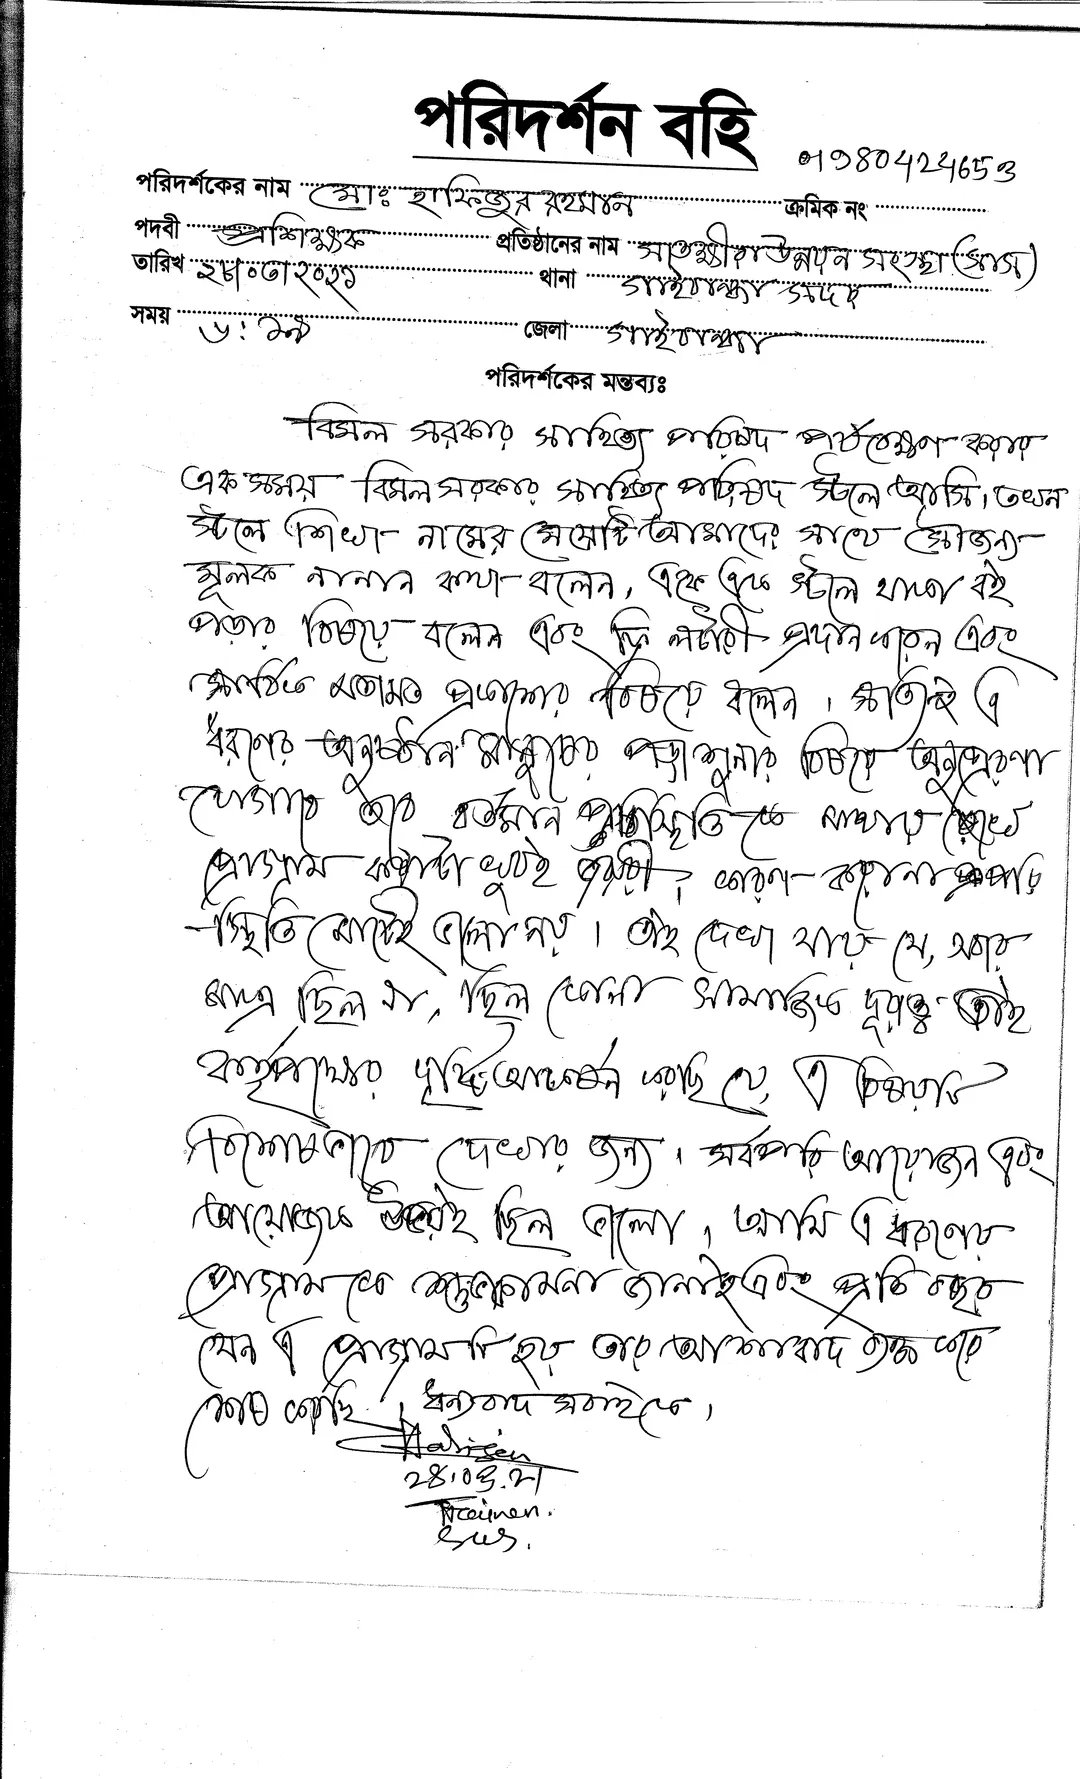 পরিদর্শন বহি
01980424653
পরিদর্শকের নাম মোঃ হাফিজুর রহমান ক্রমিক নং
পদবী প্রশিক্ষক প্রতিষ্ঠানের নাম সাতক্ষীরা উন্নয়ন সংস্থা (সাস)
তারিখ ২৮/০৩/২০২১ থানা গাইবান্ধা সদর
সময় ৬:১৮ জেলা গাইবান্ধা
পরিদর্শকের মন্তব্যঃ
বিমল সরকার সাহিত্য পরিষদ পর্যবেক্ষণ করার
এক সময় বিমল সরকার সাহিত্য পরিষদ স্টলে আসি, তখন
স্টলে শিখা নামের মেয়েটি আমাদের সাথে সৌজন্য
মূলক নানান কথা বলেন, একে একে স্টলে থাকা বই
পড়ার বিষয়ে বলেন এবং ফ্রি লটারী প্রদান করেন এবং
সার্বিক মতামত প্রকাশের বিষয়ে বলেন। সত্যিই এ
ধরণের অনুষ্ঠান মানুষের পড়াশুনার বিষয়ে অনুপ্রেরণা
যোগাবে তবে বর্তমান পরিস্থিতি কে মাথায় রেখে
প্রোগ্রাম করাটা খুবই জরুরী, কারণ করোনা পরি
স্থিতি মোটেই ভালো নয়। তাই দেখা যায় যে, সবার
মাস্ক ছিল না, ছিল কোনো সামাজিক দূরত্ব তাই
কর্তৃপক্ষের দৃষ্টি আকর্ষন করছি যে, এ বিষয়টি
বিশেষভাবে দেখার জন্য। সর্বপরি আয়োজন এবং
আয়োজক উভয়ই ছিল ভালো, আমি এ ধরণের
প্রোগ্রাম কে শুভকামনা জানাই এবং প্রতি বছর
যেন এ প্রোগ্রামটি হয় তার আশাবাদ ব্যক্ত করে
শেষ করছি। ধন্যবাদ সবাইকে।
28.03.21
Trainer.
SUS.